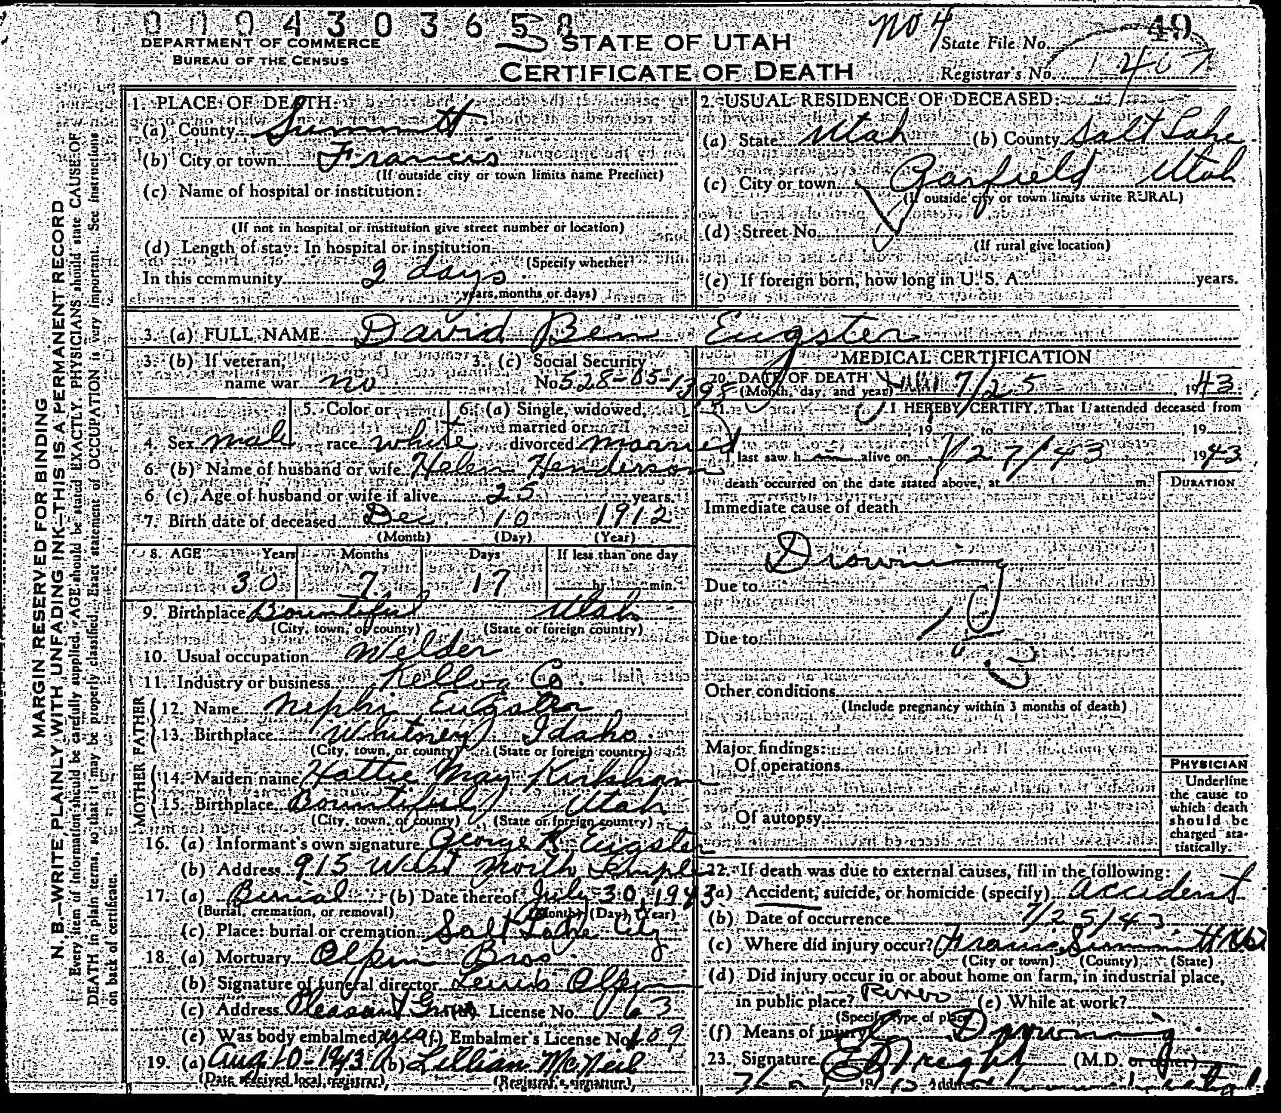 0 0 0 4 3 0 3 6 5 8
No 4
49
DEPARTMENT OF COMMERCE
BUREAU OF THE CENSUS
STATE OF UTAH
CERTIFICATE OF DEATH
State File No.
Registrar's No. 407
MARGIN RESERVED FOR BINDING
N. B.—WRITE PLAINLY WITH UNFADING INK—THIS IS A PERMANENT RECORD
Every item of information should be carefully supplied. AGE should be stated EXACTLY. PHYSICIANS should state CAUSE OF
DEATH in plain terms, so that it may be properly classified. Exact statement of OCCUPATION is very important. See instructions
on back of certificate.
1. PLACE OF DEATH:
(a) County Summitt
(b) City or town Francis
(If outside city or town limits name Precinct)
(c) Name of hospital or institution:
(If not in hospital or institution give street number or location)
(d) Length of stay: In hospital or institution
(Specify whether
In this community 2 days
years, months or days)
2. USUAL RESIDENCE OF DECEASED:
(a) State Utah (b) County Salt Lake
(c) City or town Garfield Utah
(If outside city or town limits write RURAL)
(d) Street No.
(If rural give location)
(e) If foreign born, how long in U. S. A. years.
3. (a) FULL NAME David Ben Eugster
3. (b) If veteran, name war no
3. (c) Social Security No. 528-05-1398
4. Sex male
5. Color or race white
6. (a) Single, widowed, married or divorced married
6. (b) Name of husband or wife Helen Henderson
6. (c) Age of husband or wife if alive 25 years.
7. Birth date of deceased Dec 10 1912
(Month) (Day) (Year)
8. AGE Years Months Days If less than one day
30 7 17 hr. min.
9. Birthplace Bountiful Utah
(City, town, or county) (State or foreign country)
10. Usual occupation Welder
11. Industry or business Kellog Co.
FATHER
12. Name Nephi Eugster
13. Birthplace Whitney Idaho
(City, town, or county) (State or foreign country)
MOTHER
14. Maiden name Hattie May Kirkham
15. Birthplace Bountiful Utah
(City, town, or county) (State or foreign country)
16. (a) Informant's own signature George K. Eugster
(b) Address 915 West North Temple
17. (a) Burial (b) Date thereof July 30, 1943
(Burial, cremation, or removal) (Month) (Day) (Year)
(c) Place: burial or cremation Salt Lake City
18. (a) Mortuary Olpin Bros
(b) Signature of funeral director Lewis Olpin
(c) Address Pleasant Grove License No. 163
(e) Was body embalmed yes (f) Embalmer's License No. 109
19. (a) Aug 10-1943 (b) Lillian McNeil
(Date received local registrar) (Registrar's signature)
MEDICAL CERTIFICATION
20. DATE OF DEATH 7/25 1943
(Month, day, and year)
21. I HEREBY CERTIFY, That I attended deceased from
19 to 19
I last saw h alive on 27/43 1943
death occurred on the date stated above, at m.
DURATION
Immediate cause of death
Drowning
Due to
Due to
Other conditions
(Include pregnancy within 3 months of death)
Major findings:
Of operations
Of autopsy
PHYSICIAN
Underline
the cause to
which death
should be
charged sta-
tistically.
22. If death was due to external causes, fill in the following:
(a) Accident, suicide, or homicide (specify) accident
(b) Date of occurrence 7/25/43
(c) Where did injury occur? Francis Summitt
(City or town) (County) (State)
(d) Did injury occur in or about home on farm, in industrial place,
in public place? River (e) While at work?
(Specify type of place)
(f) Means of injury Drowning
23. Signature (M.D. or other)
Address